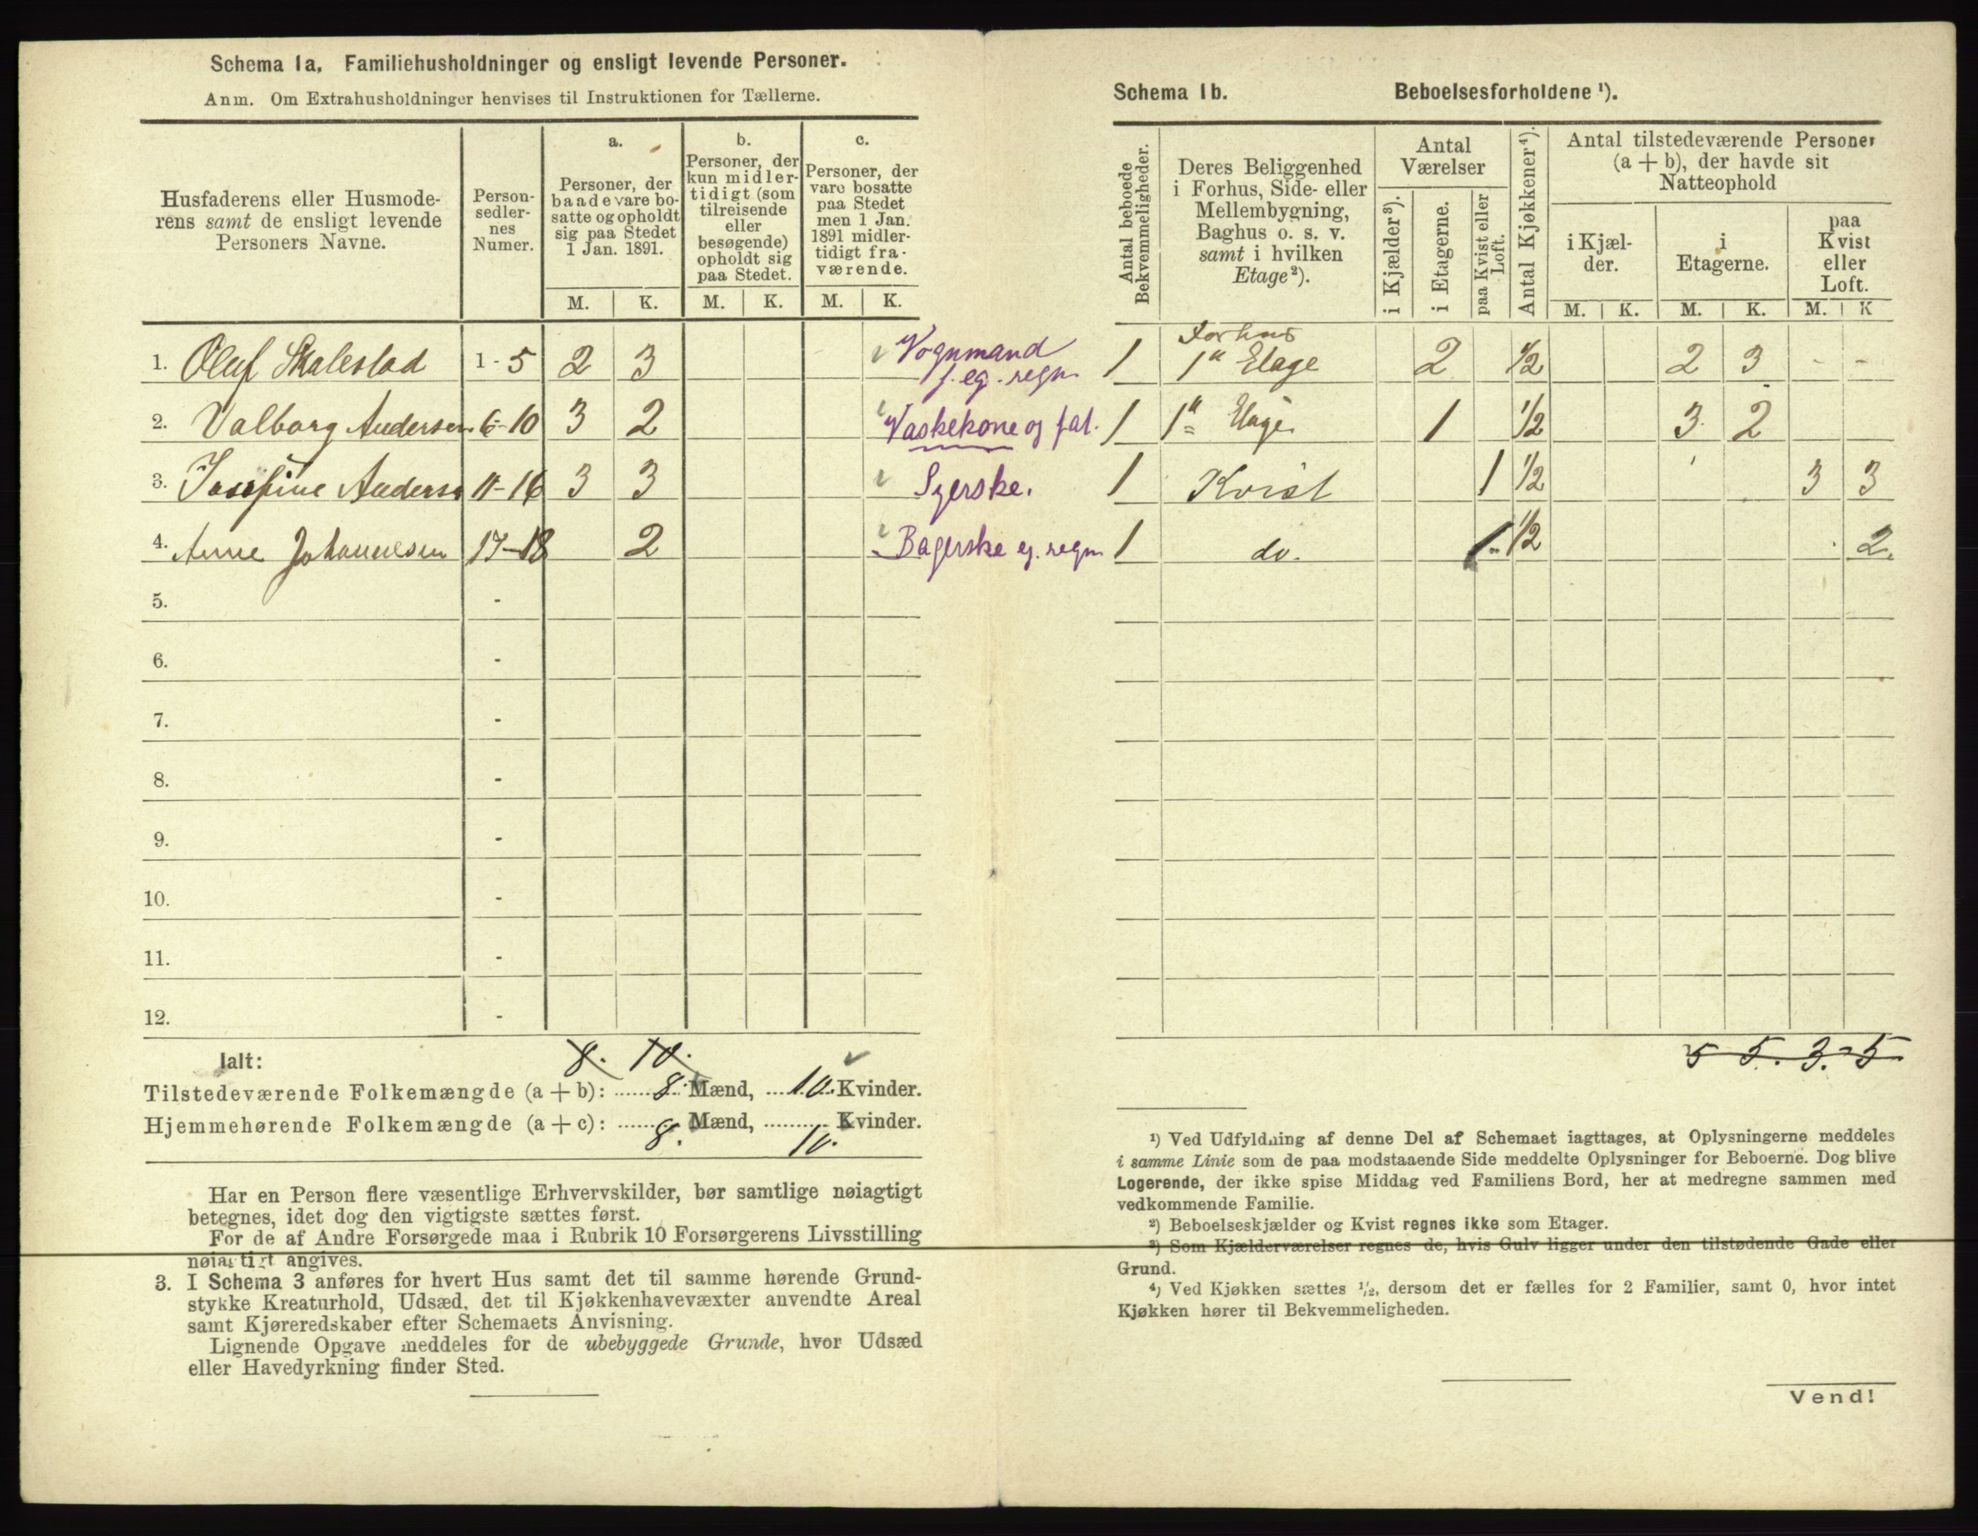 Schema 1a. Familiehusholdninger og ensligt levende Personer.
Anm. Om Extrahusholdninger henvises til Instruktionen for Tællerne.
Husfaderens eller Husmode-
rens samt de ensligt levende
Personers Navne.
Person-
sedler-
nes
Numer.
a.
Personer, der
baade vare bo-
satte og opholdt
sig paa Stedet
1 Jan. 1891.
b.
Personer, der
kun midler-
tidigt (som
tilreisende
eller
besøgende)
opholdt sig
paa Stedet.
c.
Personer, der
vare bosatte
paa Stedet
men 1 Jan.
1891 midler-
tidigt fra-
værende.
M. K. M. K. M. K.
1. Oluf Skalestad 1-5 2 3 Vognmand
f. eg. regn.
2. Valborg Andersen 6-10 3 2 Vaskekone og fat.
3. Josefine Anderse 11-16 3 3 Syerske.
4. Anne Johannesen 17-18 2 Bagerske eg. regn.
5. -
6. -
7. -
8. -
9. -
10. -
11. -
12. -
Ialt: 8. 10.
Tilstedeværende Folkemængde (a + b): 8. Mænd, 10. Kvinder.
Hjemmehørende Folkemængde (a + c): 8. Mænd, 10. Kvinder.
Har en Person flere væsentlige Erhvervskilder, bør samtlige nøiagtigt
betegnes, idet dog den vigtigste sættes først.
For de af Andre Forsørgede maa i Rubrik 10 Forsørgerens Livsstilling
nøiagtigt angives.
3. I Schema 3 anføres for hvert Hus samt det til samme hørende Grund-
stykke Kreaturhold, Udsæd, det til Kjøkkenhavevæxter anvendte Areal
samt Kjøreredskaber efter Schemaets Anvisning.
Lignende Opgave meddeles for de ubebyggede Grunde, hvor Udsæd
eller Havedyrkning finder Sted.
Schema 1b. Beboelsesforholdene ¹).
Antal beboede
Bekvemmeligheder.
Deres Beliggenhed
i Forhus, Side- eller
Mellembygning,
Baghus o. s. v.
samt i hvilken
Etage²).
Antal
Værelser
i Kjælder³).
i Etagerne.
paa Kvist eller
Loft.
Antal Kjøkkener⁴).
Antal tilstedeværende Personer
(a + b), der havde sit
Natteophold
i Kjæl-
der.
i
Etagerne.
paa
Kvist
eller
Loft.
M. K. M. K. M. K
Forhus
1 1" Etage 2 1/2 2 3 - -
1 1" Etage 1 1/2 3 2
1 Kvist 1 1/2 3 3
1 do. 1 1/2 2.
5 5. 3. 5.
¹) Ved Udfyldning af denne Del af Schemaet iagttages, at Oplysningerne meddeles
i samme Linie som de paa modstaaende Side meddelte Oplysninger for Beboerne. Dog blive
Logerende, der ikke spise Middag ved Familiens Bord, her at medregne sammen med
vedkommende Familie.
²) Beboelseskjælder og Kvist regnes ikke som Etager.
³) Som Kjælderværelser regnes de, hvis Gulv ligger under den tilstødende Gade eller
Grund.
⁴) Ved Kjøkken sættes ¹/₂, dersom det er fælles for 2 Familier, samt 0, hvor intet
Kjøkken hører til Bekvemmeligheden.
Vend!